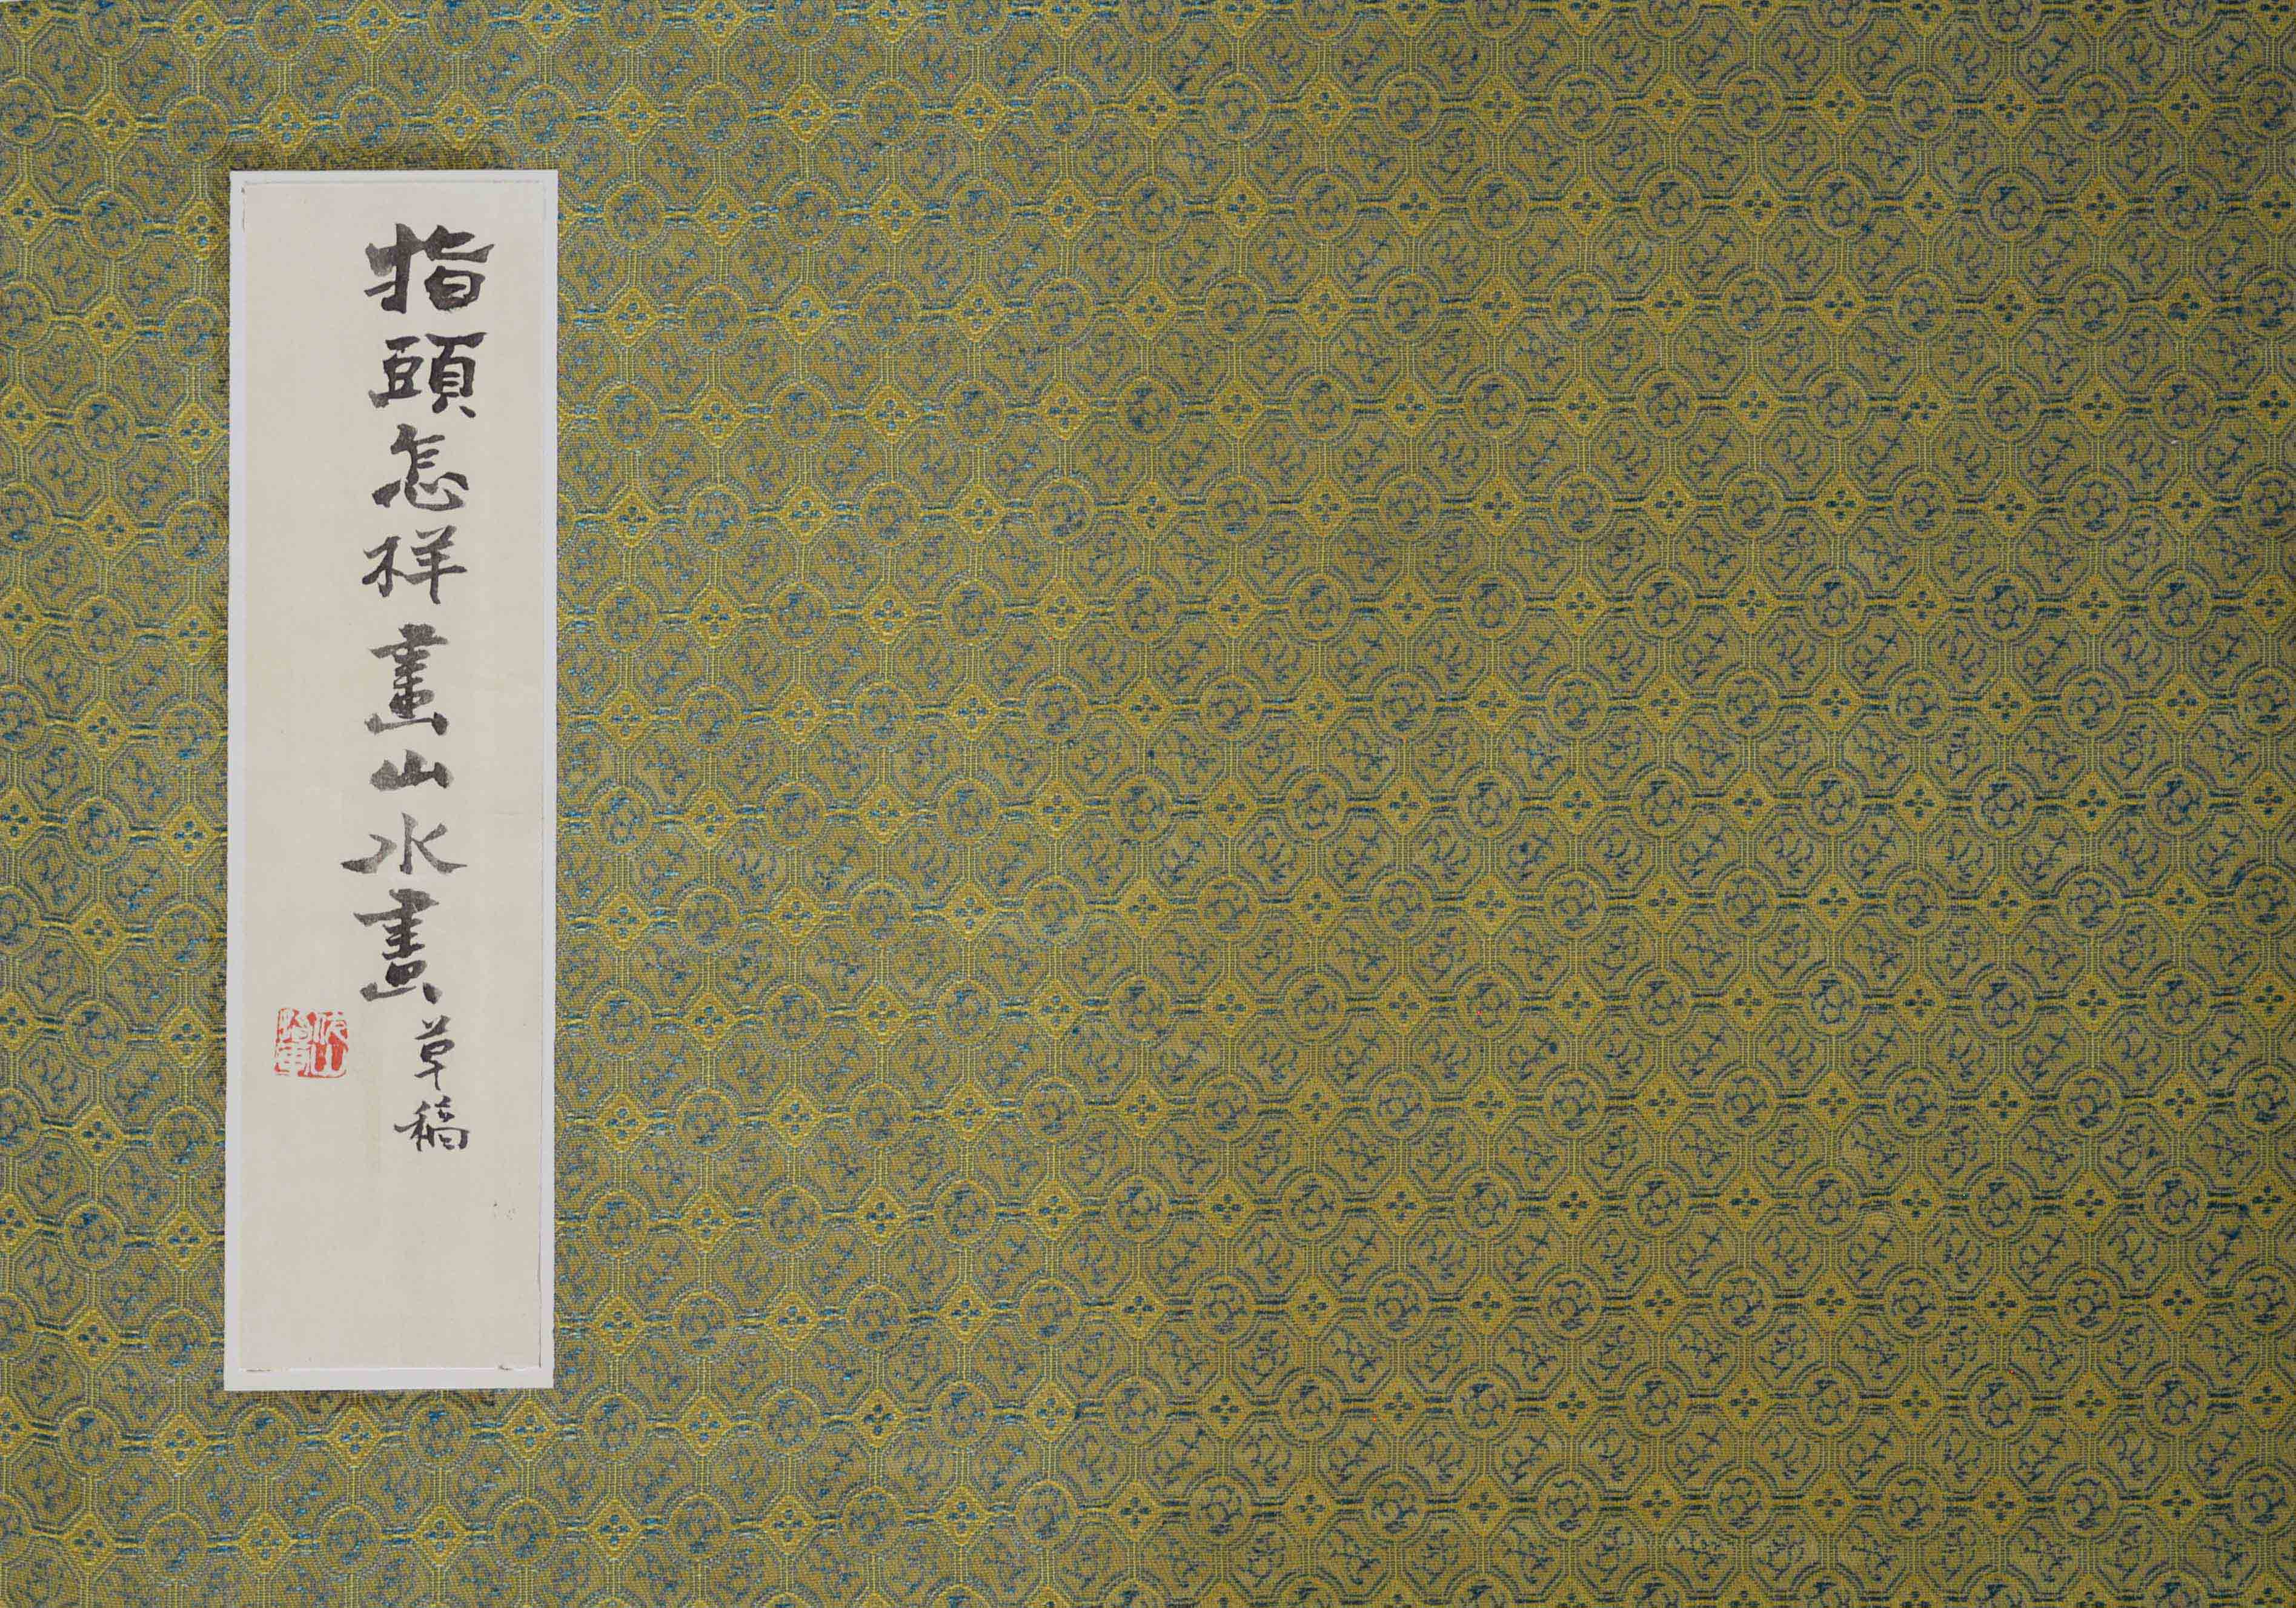 指頭怎样畫山水畫草稿